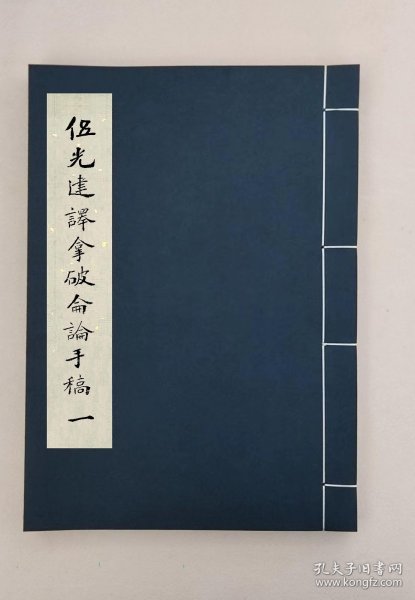 伍光建譯拿破侖論手稿 一
孔夫子旧书网
www.kongfz.com